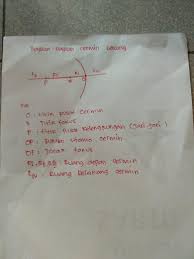 Bagian-bagian cermin cekung
Ket
O : titik pusat cermin
F : titik fokus
P : titik pusat kelengkungan (jari-jari)
OP : sumbu utama cermin
OF : jarak fokus
: Ruang depan cermin
: Ruang belakang cermin